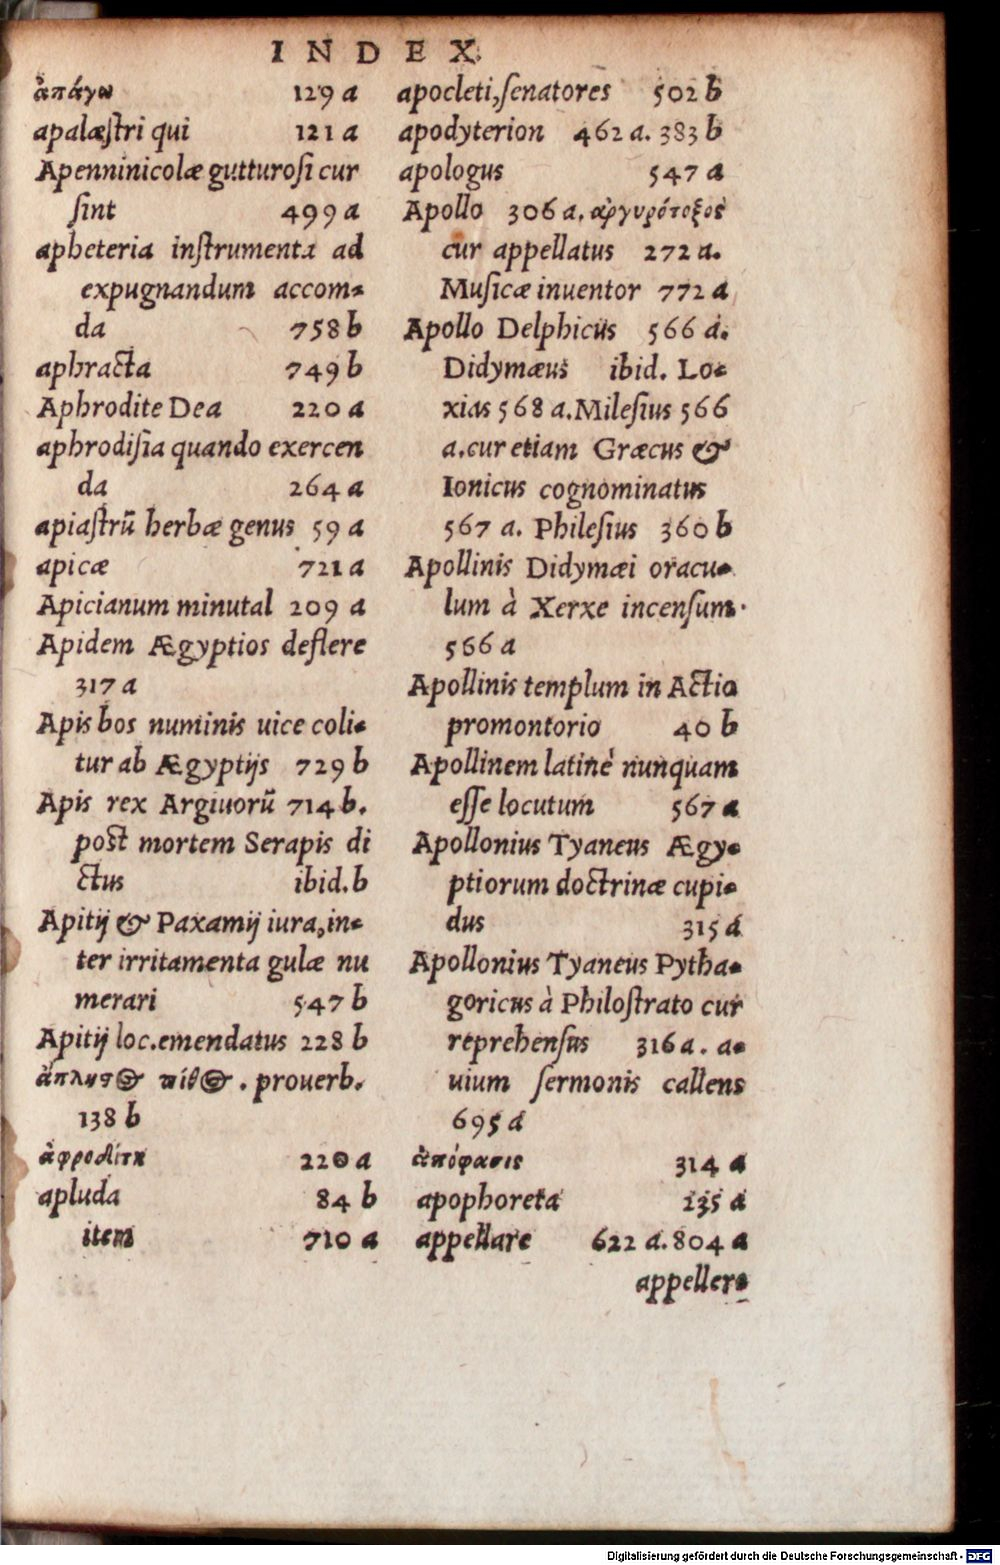 INDEX
ἀπάγω 129 a
apalæstri qui 121 a
Apenninicolæ gutturosi cur
sint 499 a
apheteria instrumenta ad
expugnandum accom-
da 758 b
aphracta 749 b
Aphrodite Dea 220 a
aphrodisia quando exercen
da 264 a
apiastrũ herbæ genus 59 a
apicæ 721 a
Apicianum minutal 209 a
Apidem Ægyptios deflere
317 a
Apis bos numinis uice coli-
tur ab Ægyptijs 729 b
Apis rex Argiuorũ 714 b.
post mortem Serapis di
ctus ibid. b
Apitij & Paxamij iura, in-
ter irritamenta gulæ nu
merari 547 b
Apitij loc. emendatus 228 b
ἄπληστος πίθος. prouerb.
138 b
ἀφροδίτη 220 a
apluda 84 b
item 710 a
apocleti, senatores 502 b
apodyterion 462 a. 383 b
apologus 547 a
Apollo 306 a. ἀργυρότοξος
cur appellatus 272 a.
Musicæ inuentor 772 a
Apollo Delphicus 566 a.
Didymæus ibid. Lo-
xias 568 a. Milesius 566
a. cur etiam Græcus &
Ionicus cognominatus
567 a. Philesius 360 b
Apollinis Didymæi oracu-
lum à Xerxe incensum.
566 a
Apollinis templum in Actio
promontorio 40 b
Apollinem latinè nunquam
esse locutum 567 a
Apollonius Tyaneus Ægy-
ptiorum doctrinæ cupi-
dus 315 a
Apollonius Tyaneus Pytha-
goricus à Philostrato cur
reprehensus 316 a. a-
uium sermonis callens
695 a
ἀπόφασις 314 a
apophoreta 135 a
appellare 622 a. 804 a
appellere
Digitalisierung gefördert durch die Deutsche Forschungsgemeinschaft - DFG